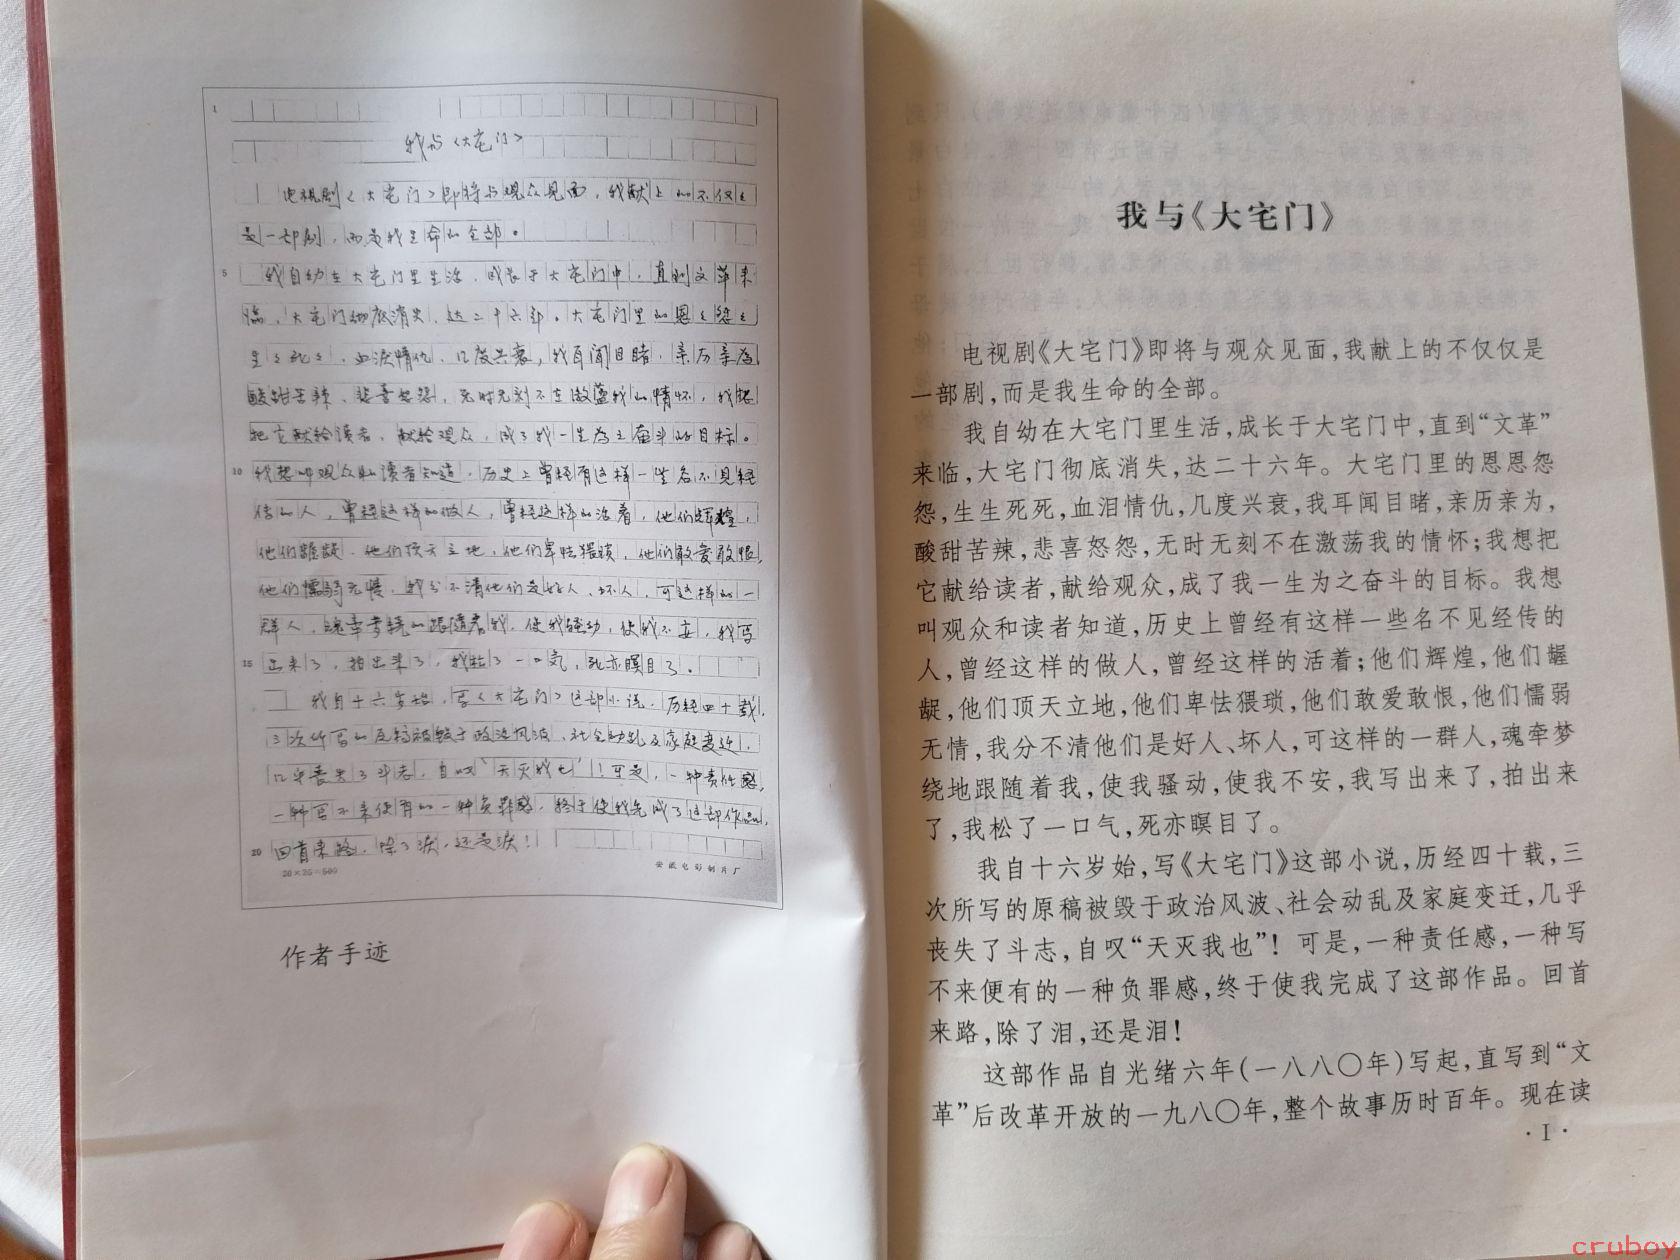 1
我与《大宅门》
电视剧《大宅门》即将与观众见面，我献上的不仅仅
是一部剧，而是我生命的全部。
5
我自幼在大宅门里生活，成长于大宅门中，直到文革来
临，大宅门彻底消失，达二十六年。大宅门里的恩恩怨怨
生生死死，血泪情仇，几度兴衰，我耳闻目睹，亲历亲为
酸甜苦辣、悲喜怒怨，无时无刻不在激荡我的情怀，我想
把它献给读者，献给观众，成了我一生为之奋斗的目标。
10
我想叫观众和读者知道，历史上曾经有这样一些名不见经
传的人，曾经这样的做人，曾经这样的活着，他们辉煌，
他们龌龊、他们顶天立地，他们卑怯猥琐，他们敢爱敢恨
他们懦弱无情，我分不清他们是好人、坏人，可这样的一
群人，魂牵梦绕的跟随着我，使我骚动，使我不安，我写
15
出来了，拍出来了，我松了一口气，死亦瞑目了。
我自十六岁始，写《大宅门》这部小说，历经四十载，
三次所写的原稿被毁于政治风波、社会动乱及家庭变迁，
几乎丧失了斗志，自叹“天灭我也”！可是，一种责任感，
一种写不来便有的一种负罪感，终于使我完成了这部作品，
20
回首来路，除了泪，还是泪！
20×25=500
安徽电影制片厂
作者手迹
我与《大宅门》
电视剧《大宅门》即将与观众见面，我献上的不仅仅是
一部剧，而是我生命的全部。
我自幼在大宅门里生活，成长于大宅门中，直到“文革”
来临，大宅门彻底消失，达二十六年。大宅门里的恩恩怨
怨，生生死死，血泪情仇，几度兴衰，我耳闻目睹，亲历亲为，
酸甜苦辣，悲喜怒怨，无时无刻不在激荡我的情怀；我想把
它献给读者，献给观众，成了我一生为之奋斗的目标。我想
叫观众和读者知道，历史上曾经有这样一些名不见经传的
人，曾经这样的做人，曾经这样的活着；他们辉煌，他们龌
龊，他们顶天立地，他们卑怯猥琐，他们敢爱敢恨，他们懦弱
无情，我分不清他们是好人、坏人，可这样的一群人，魂牵梦
绕地跟随着我，使我骚动，使我不安，我写出来了，拍出来
了，我松了一口气，死亦瞑目了。
我自十六岁始，写《大宅门》这部小说，历经四十载，三
次所写的原稿被毁于政治风波、社会动乱及家庭变迁，几乎
丧失了斗志，自叹“天灭我也”！可是，一种责任感，一种写
不来便有的一种负罪感，终于使我完成了这部作品。回首
来路，除了泪，还是泪！
这部作品自光绪六年（一八八〇年）写起，直写到“文
革”后改革开放的一九八〇年，整个故事历时百年。现在读
·I·
cruboy